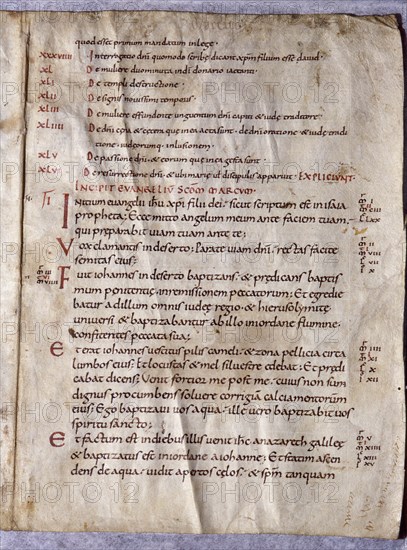 quod esset primum mandatum in lege.
XXXVIIII Interrogatio dñi quomodo scribę dicant xp̄m filium esse david.
XL De muliere duo minuta in di donario iactanti.
XLI De templi destructione.
XLII De signis novissimi temporis.
XLIII De muliere effundente unguentum dñi caput & iudę traditore
XLIIII De dñi cęna & cetera quę in ea acta sunt. de dñi oratione & iudę tradi
tione iudęorumq; inlusionem.
XLV De passione dñi. & eorum quę in ea gesta sunt.
XLVI De resurrectione dñi. & ubi marię ut discipulis apparuit. EXPLICIUNT.
INCIPIT EVANGELIUM SCDM MARCUM.
INitium evangelii ihu xpi filii dei. sicut scriptum est in isaia
propheta; Ecce mitto angelum meum ante faciem tuam.
qui preparabit uiam tuam ante te;
Vox clamantis in deserto; Parate uiam dñi. rectas facite
semitas eius;
Fuit iohannes in deserto baptizans. & prędicans baptis
mum penitentię. in remissionem peccatorum; Et egredie
batur ad illum omnis iudeę regio. & hierusolimitę
universi. & baptizabantur ab illo in iordane flumine.
confitentes peccata sua;
Et erat iohannes uestitus pilis cameli. & zona pellicia circa
lumbos eius; et locustas & mel siluestre edebat; Et prędi
cabat dicens; Venit fortior me post me. cuius non sum
dignus procumbens soluere corrigiã calciamentorum
eius; Ego baptizaui uos aqua. ille uero baptizabit uos
spiritu sancto;
Et factum est in diebus illis. uenit ihc a nazareth galileę
& baptizatus est in iordane a iohanne; Et statim ascen
dens de aqua. uidit apertos cęlos. & spm tanquam